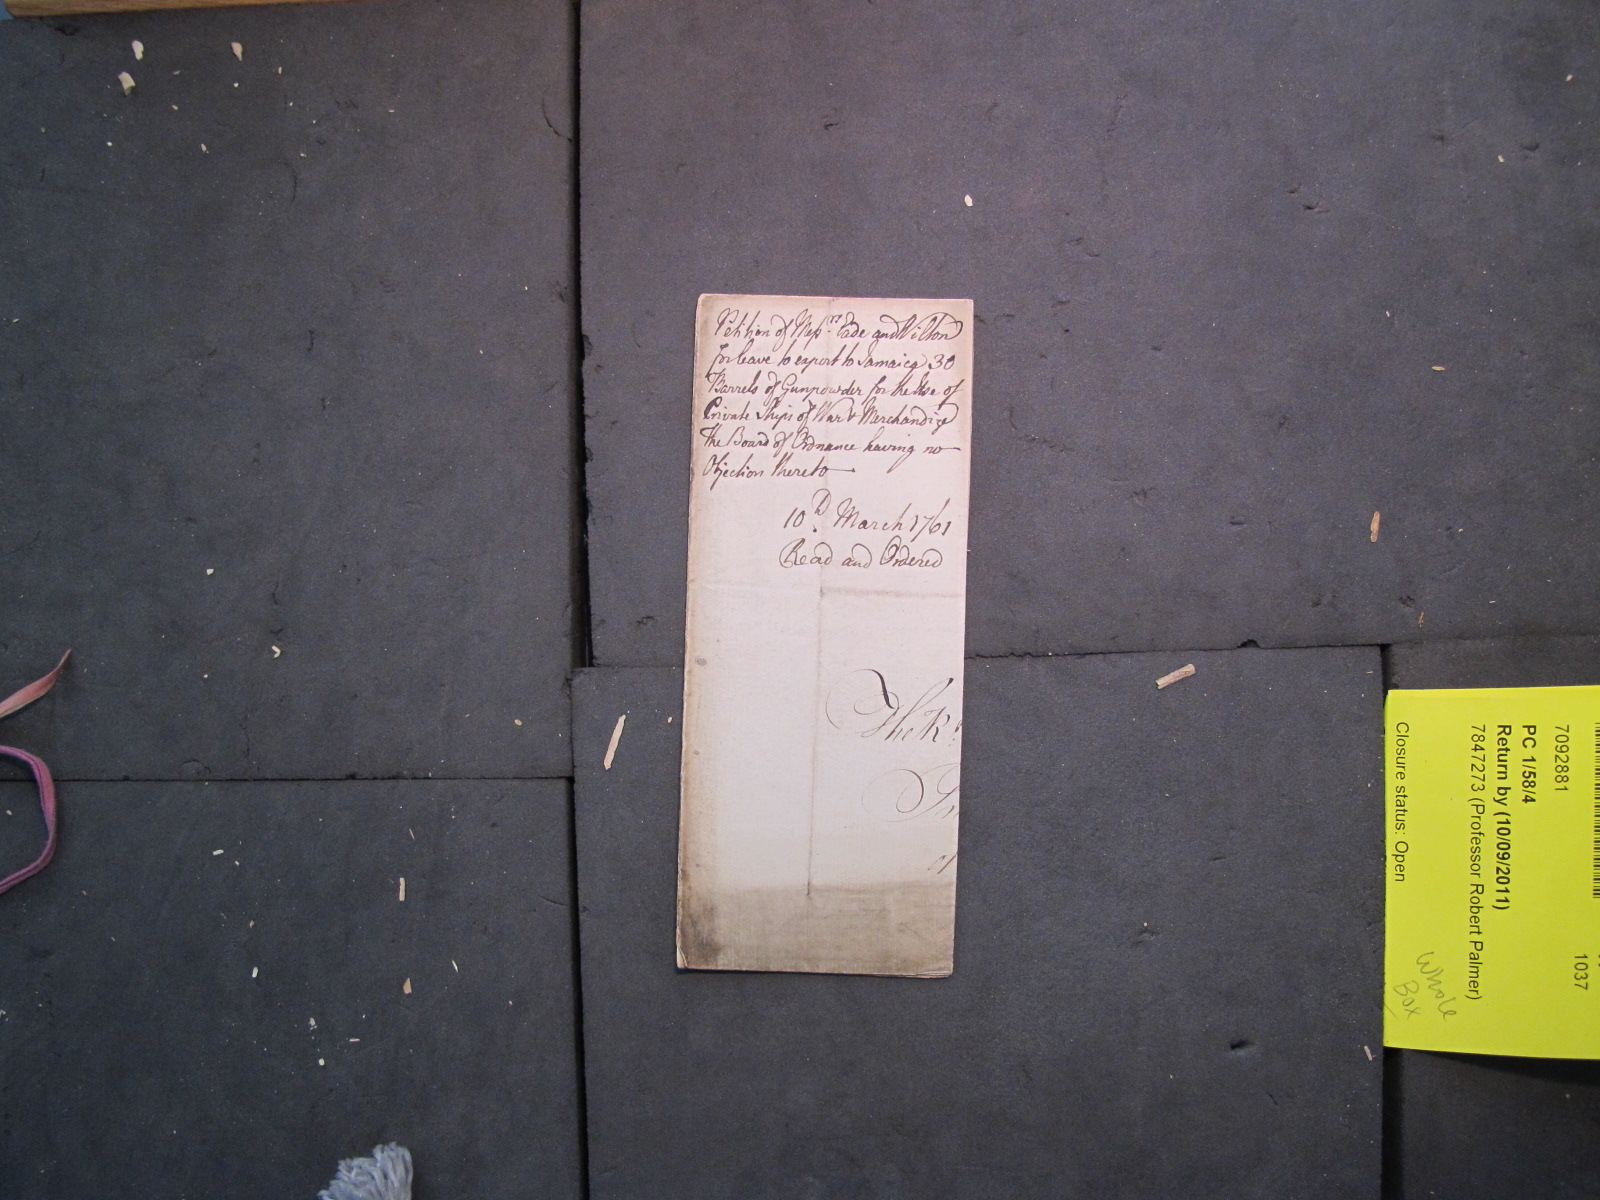 Petition of Messrs. Eade and Wilton
for leave to export to Jamaica 30
Barrels of Gunpowder for the Use of
Private Ships of War & Merchandize
The Board of Ordnance having no
Objection thereto
10th March 1761
Read and Ordered
The K
01
1037
7092881
PC 1/58/4
Return by (10/09/2011)
7847273 (Professor Robert Palmer)
Closure status: Open
Whole
Box